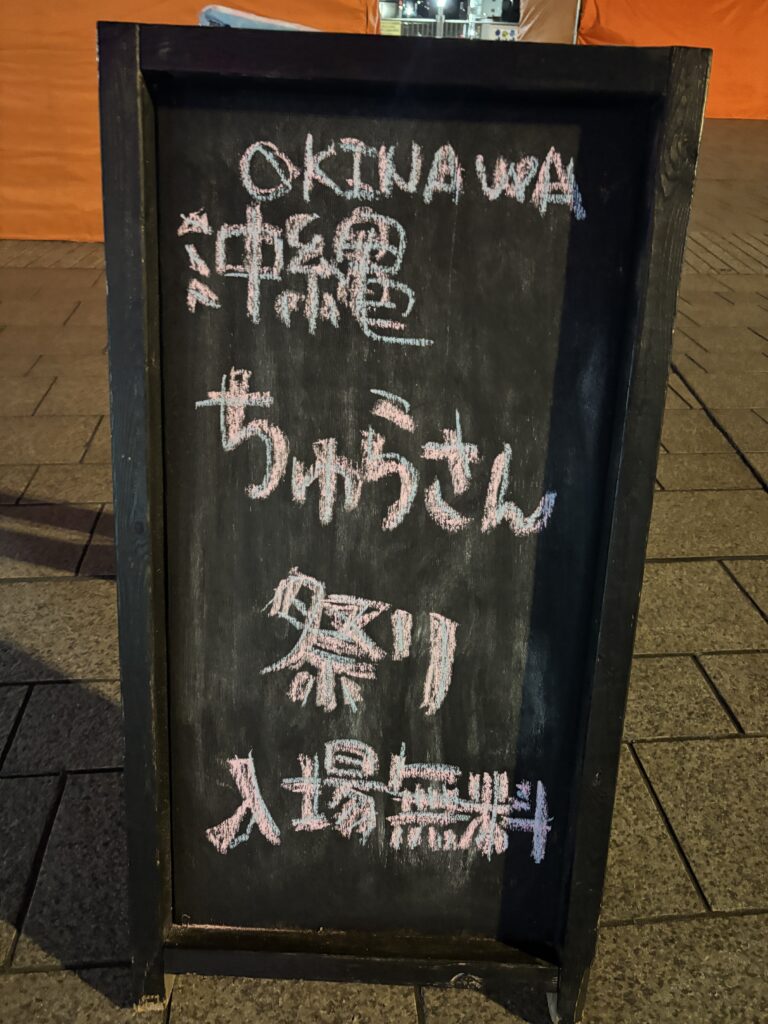 OKINAWA
沖縄
ちゅらさん
祭り
入場無料